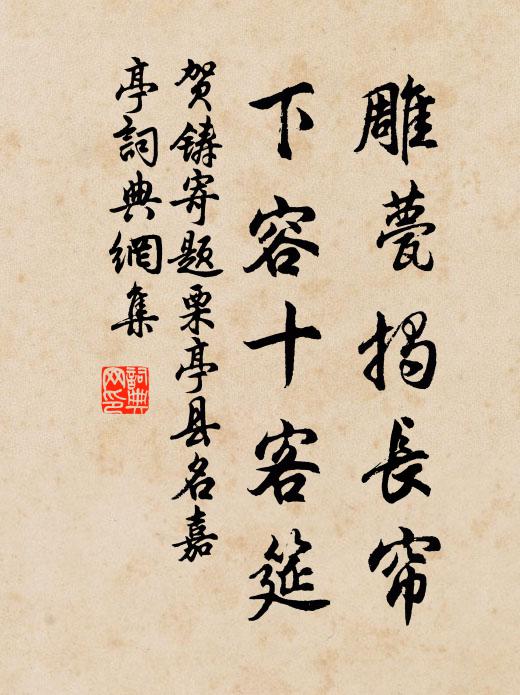 雕甍揭長帘
下容十客筵
贺鑄寄题栗亭县名嘉
亭詞典網集
詞典网印